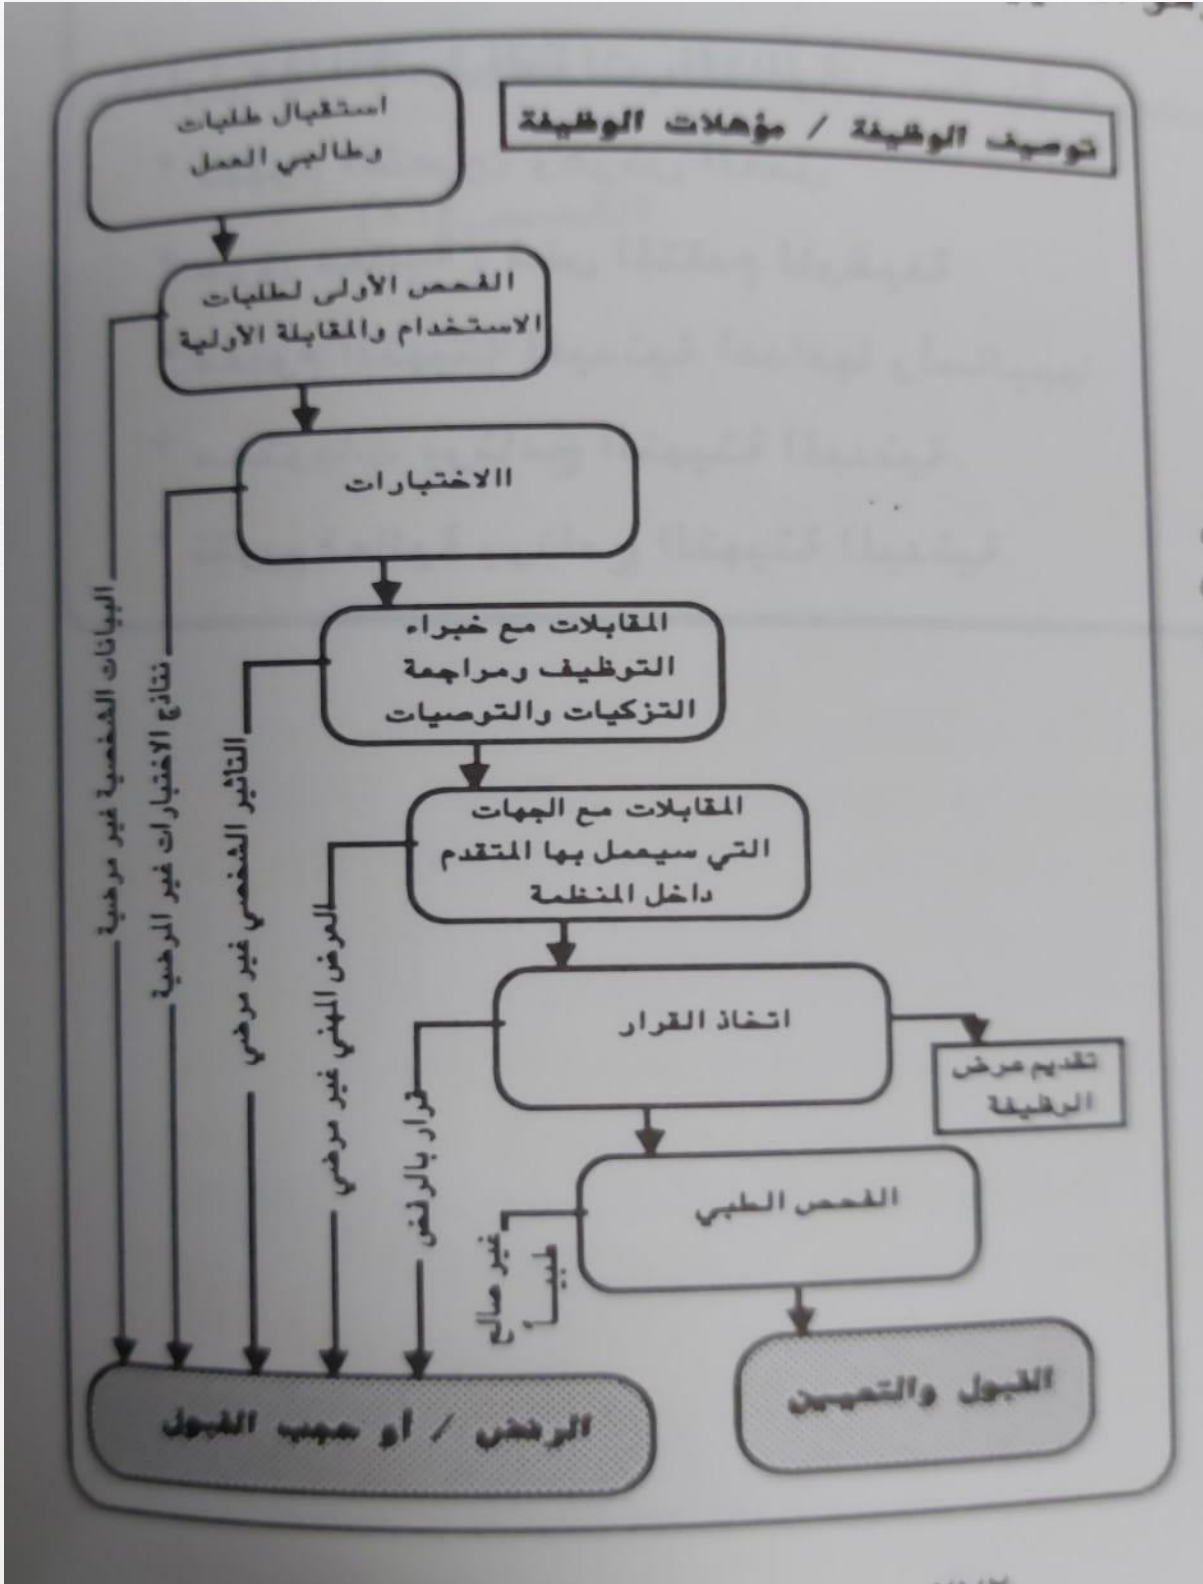 توصيف الوظيفة / مؤهلات الوظيفة
استقبال طلبات
وطالبي العمل
الفحص الأولى لطلبات
الاستخدام والمقابلة الأولية
االاختبارات
المقابلات مع خبراء
التوظيف ومراجعة
التزكيات والتوصيات
المقابلات مع الجهات
التي سيعمل بها المتقدم
داخل المنظمة
اتخاذ القرار
تقديم عرض
الوظيفة
الفحص الطبي
القبول والتعيين
البيانات الشخصية غير مرضية
نتائج الاختبارات غير المرضية
التاثير الشخصي غير مرضي
العرض المهني غير مرضي
قرار بالرفض
غير صالح
طبيـــأ
الرفض / أو سحب القبول